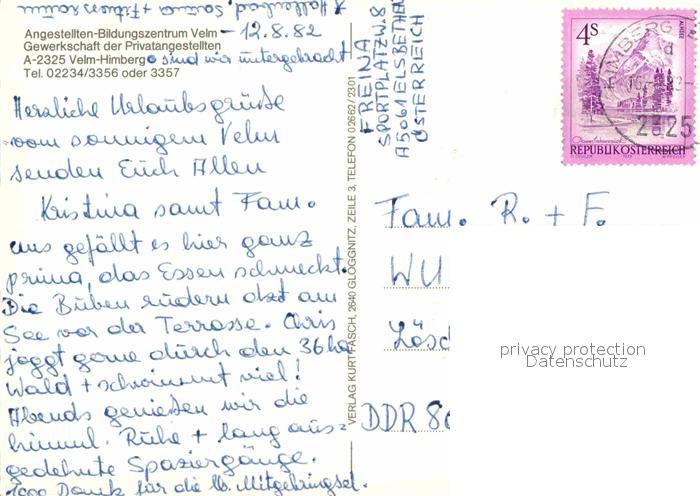 * Hallenbad, Sauna + Fitnessraum
Angestellten-Bildungszentrum Velm - 12.8.82
Gewerkschaft der Privatangestellten
A-2325 Velm-Himberg o sind wir untergebracht
Tel. 02234/3356 oder 3357
Herzliche Urlaubsgrüße
vom sonnigem Velm
senden Euch Allen
Kristina samt Fam.
uns gefällt es hier ganz
prima, das Essen schmeckt.
Die Buben rudern dzt am
See vor der Terrasse. Chris
joggt gerne durch den 36 ha
Wald + schwimmt viel!
Abends genießen wir die
himml. Ruhe + lang aus=
gedehnte Spaziergänge.
1000 Dank für die lb. Mitgebringsel.
VERLAG KURT FASCH, 2640 GLOGGNITZ, ZEILE 3, TELEFON 02662/2301
FREINA
SPORTPLATZW. 8
A 5061 ELSBETHEN
ÖSTERREICH
4S
ALMSEE
Oberösterreich
REPUBLIK ÖSTERREICH
HIMBERG
2325
Fam. R. + F.
WU
Lösc
DDR 80
privacy protection
Datenschutz